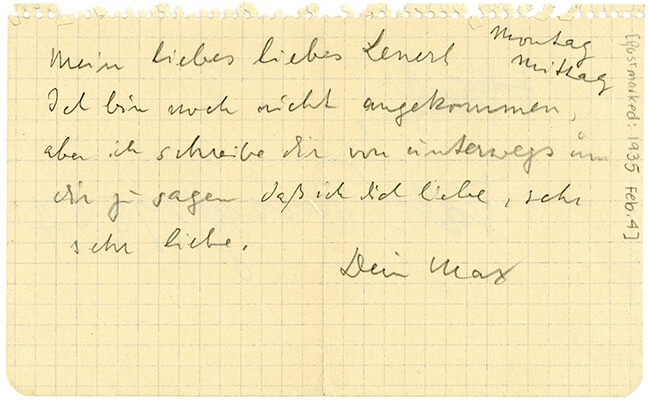 Montag
Mittag
Mein liebes liebes Lenerl
Ich bin noch nicht angekommen,
aber ich schreibe dir von unterwegs um
dir zu sagen daß ich dich liebe, sehr
sehr liebe.
Dein Max
[Postmarked: 1935 Feb. 4]